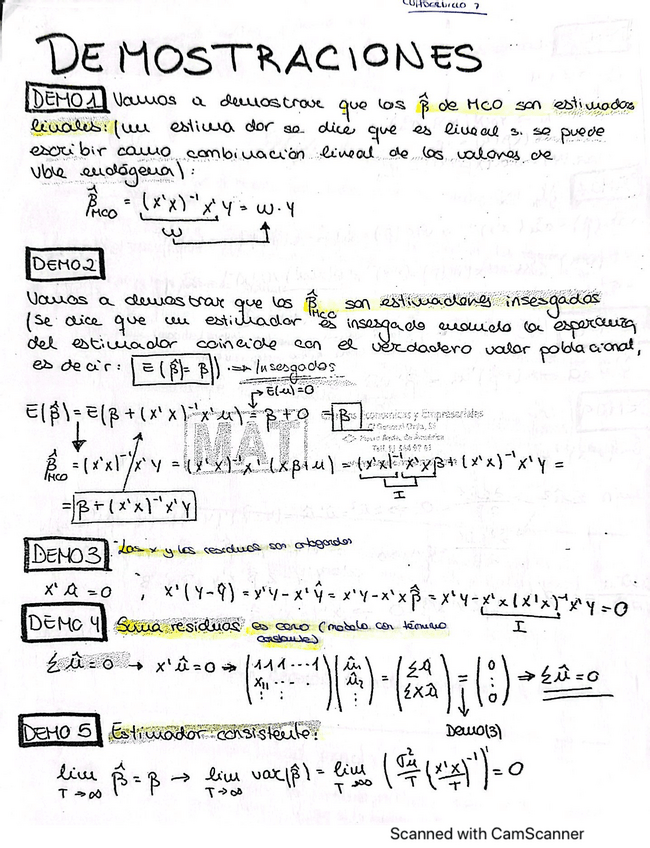 DEMOSTRACIONES
DEMO 1 Vamos a demostrar que los β̂ de MCO son estimados
lineales: (un estimador se dice que es lineal si se puede
escribir como combinación lineal de los valores de
vble endógena):
β̂MCO = (x'x)⁻¹x'Y = ω·Y
ω
DEMO 2
Vamos a demostrar que los β̂MCO son estimadores insesgados
(Se dice que un estimador es insesgado cuando la esperanza
del estimador coincide con el verdadero valor poblacional,
es decir: E(β̂) = β) → Insesgados
E(u)=0
E(β̂) = E(β + (x'x)⁻¹x'u) = β + 0 = β
MAT
β̂MCO = (x'x)⁻¹x'Y = (x'x)⁻¹x'(xβ+u) = (x'x)⁻¹x'xβ + (x'x)⁻¹x'Y =
I
= β + (x'x)⁻¹x'Y
DEMO 3 Las x y los residuos son ortogonales
x'û = 0 ; x'(Y-Ŷ) = x'Y - x'Ŷ = x'Y - x'xβ̂ = x'Y - x'x(x'x)⁻¹x'Y = 0
I
DEMO 4 Suma residuos es cero (modelo con término
constante)
Σû = 0 → x'û = 0 → (1 1 1 ... 1 / x₁₁ ...) (û₁ / û₂ / ⋮) = (Σû / Σxû) = (0 / ⋮ / 0) ⇒ Σû = 0
Demo(3)
DEMO 5 Estimador consistente:
lim T→∞ β̂ = β → lim T→∞ var(β̂) = lim T→∞ (σ²u/T (x'x/T)⁻¹) = 0
Scanned with CamScanner